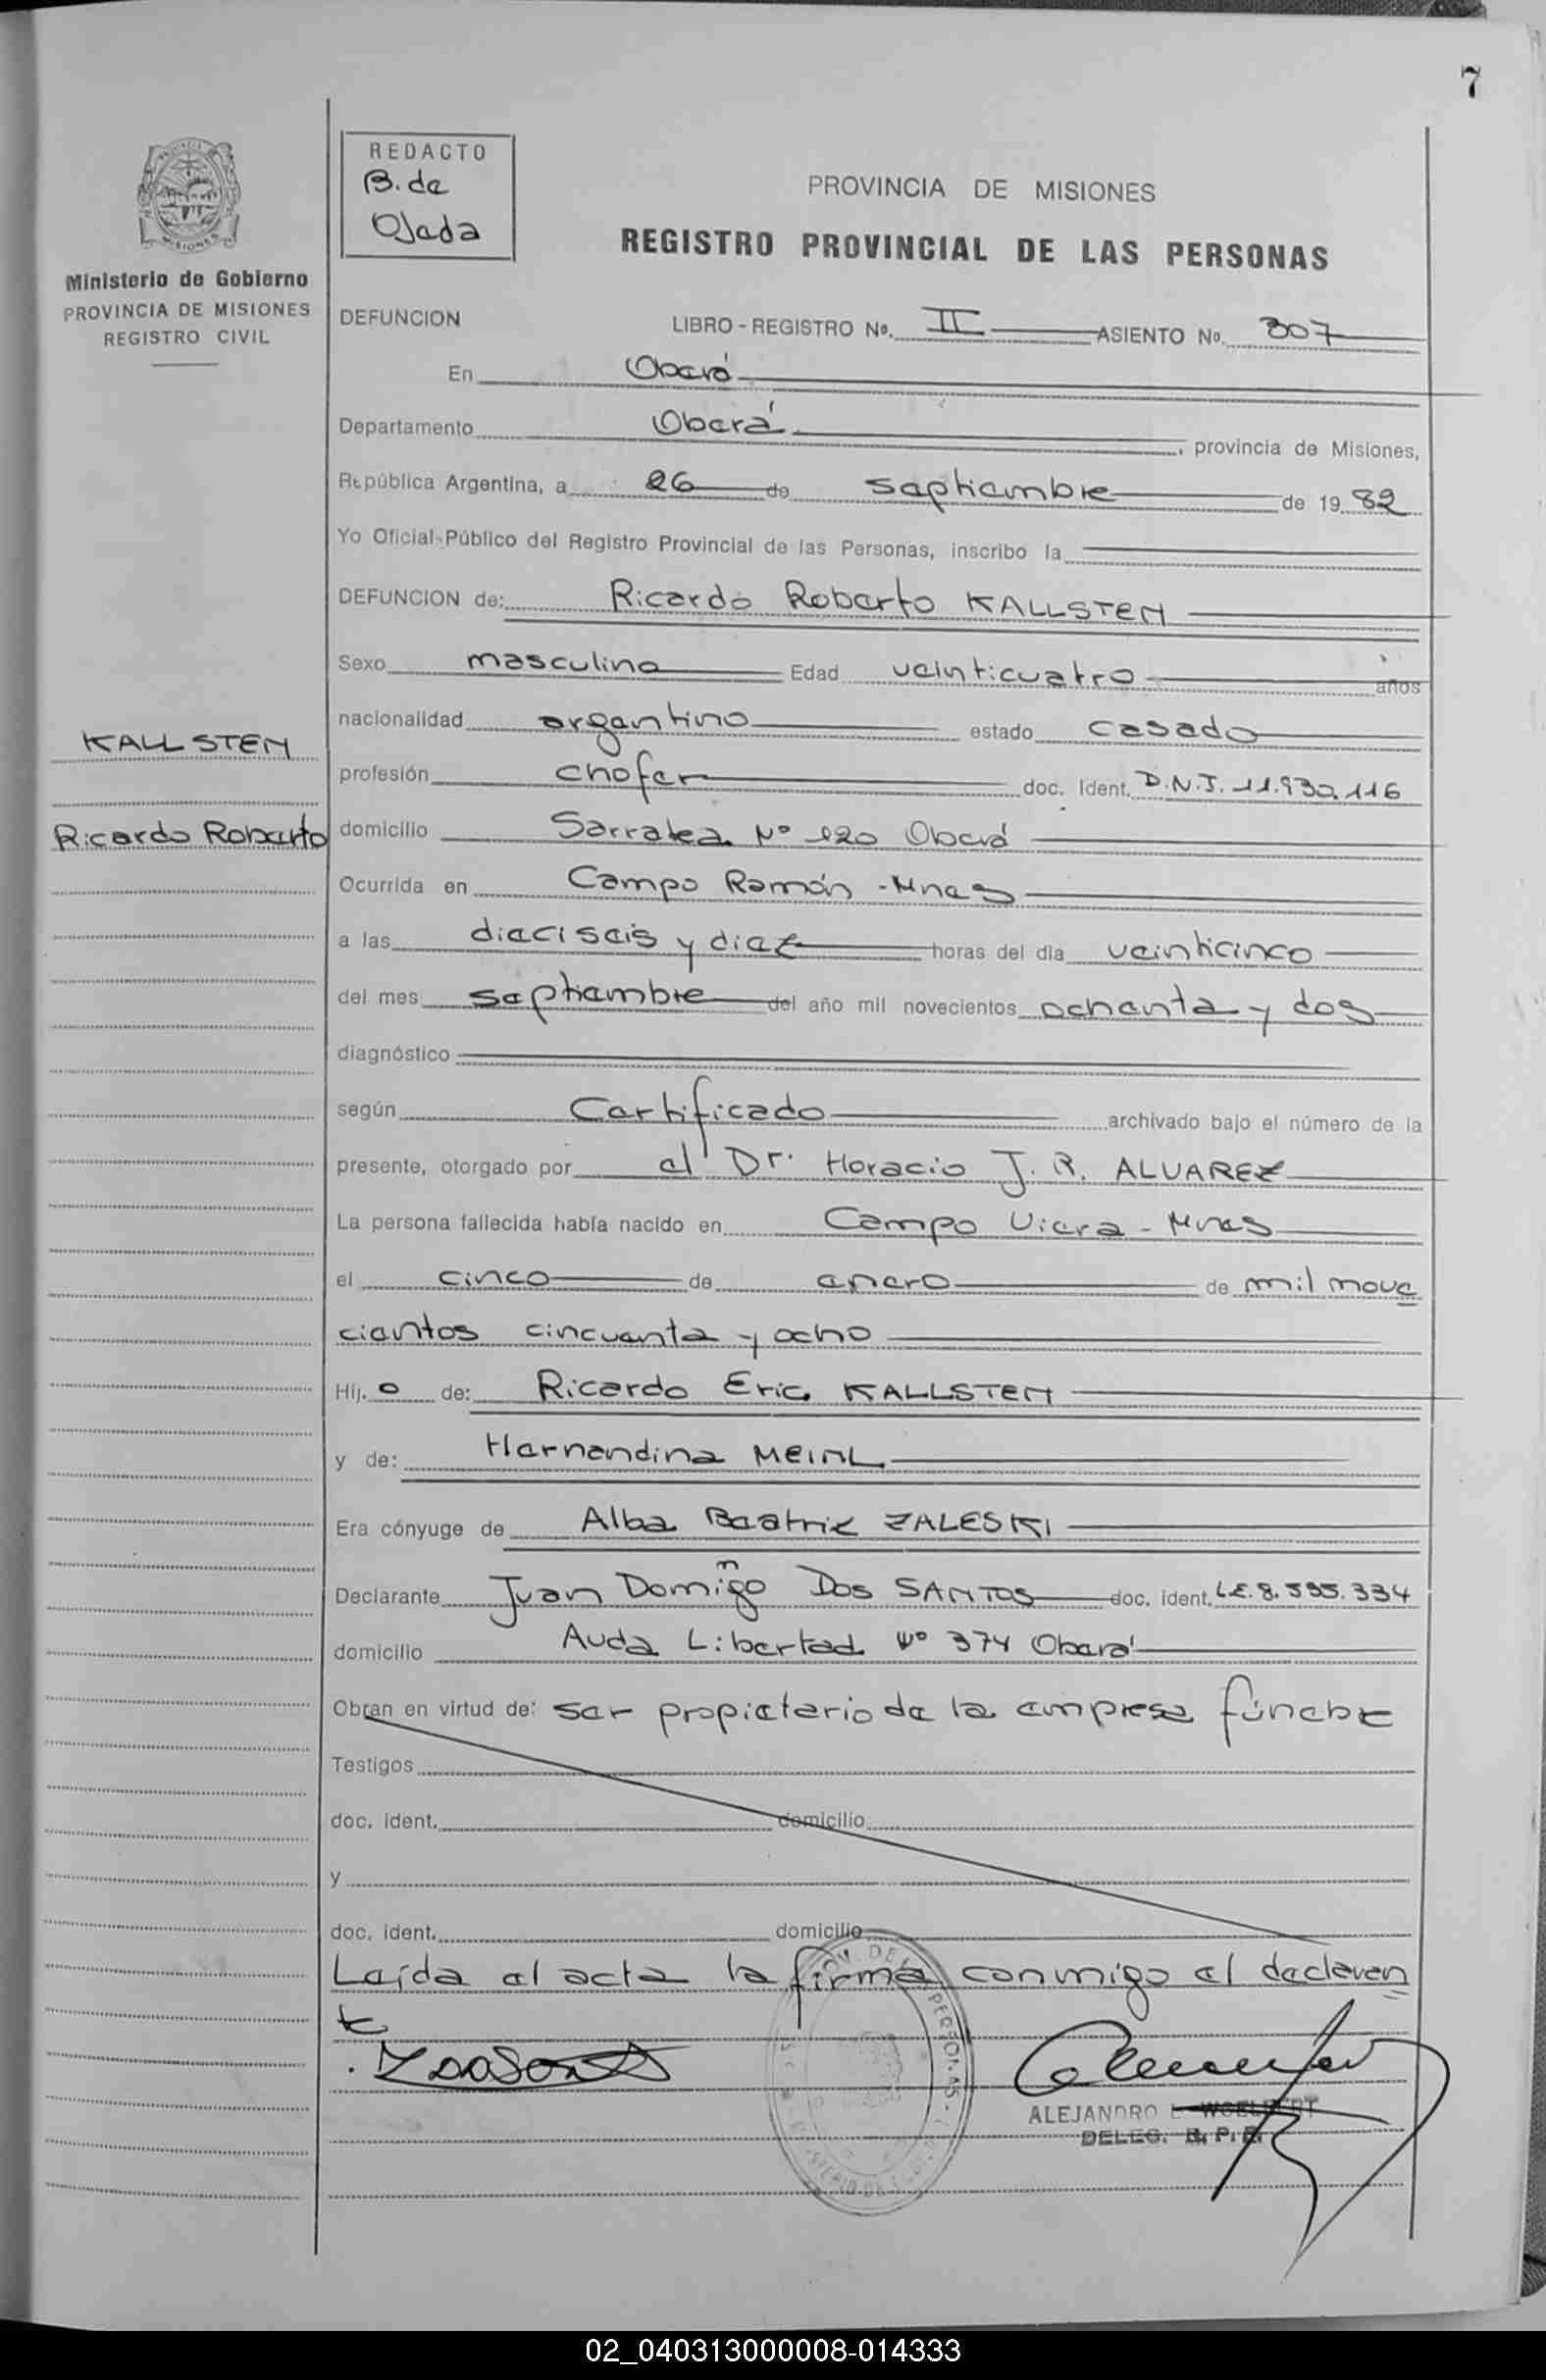 7
REDACTO
B. de
Ojeda
MISIONES
Ministerio de Gobierno
PROVINCIA DE MISIONES
REGISTRO CIVIL
PROVINCIA DE MISIONES
REGISTRO PROVINCIAL DE LAS PERSONAS
DEFUNCION LIBRO - REGISTRO Nº. II ASIENTO Nº. 307
En Oberá
Departamento Oberá, provincia de Misiones,
República Argentina, a 26 de septiembre de 1982
Yo Oficial Público del Registro Provincial de las Personas, inscribo la
DEFUNCION de: Ricardo Roberto KALLSTEN
Sexo masculino Edad veinticuatro años
nacionalidad argentino estado casado
KALLSTEN
profesión chofer doc. Ident. D.N.I. 11.930.116
Ricardo Roberto
domicilio Sarratea Nº 120 Oberá
Ocurrida en Campo Ramón - Mnes
a las dieciseis y diez horas del día veinticinco
del mes septiembre del año mil novecientos ochenta y dos
diagnóstico
según Certificado archivado bajo el número de la
presente, otorgado por el Dr. Horacio J. R. ALVAREZ
La persona fallecida había nacido en Campo Viera - Mnes
el cinco de enero de mil nove
cientos cincuenta y ocho
Hij. o de: Ricardo Eric KALLSTEN
y de: Hernandina MEINL
Era cónyuge de Alba Beatriz ZALESKI
Declarante Juan Domingo Dos SANTOS doc. ident. L.E. 8.595.334
domicilio Avda Libertad Nº 374 Oberá
Obran en virtud de: ser propietario de la empresa fúnebre
Testigos
doc. ident. domicilio
y
doc. ident. domicilio
Leída el acta la firma conmigo el declaran
te
ALEJANDRO WOELFERT
DELEG. R. P. P.
02_040313000008-014333